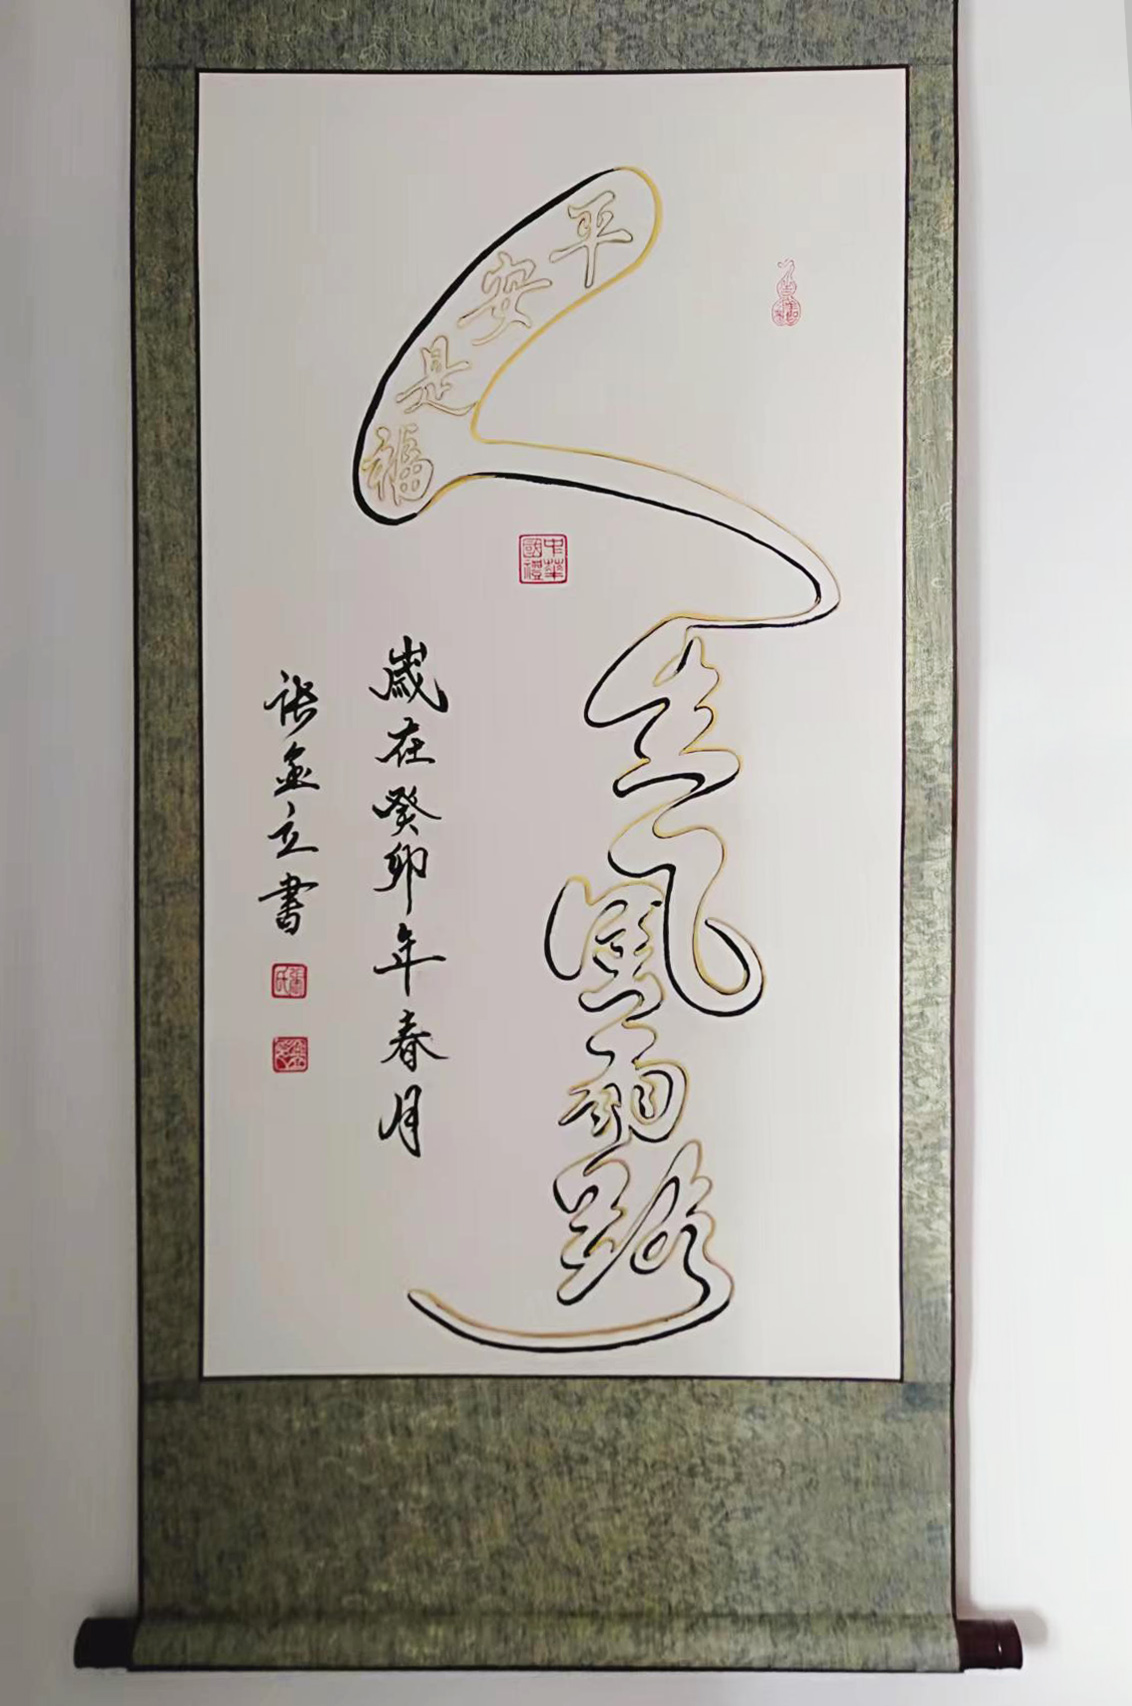 人生風雨路
平安是福
中華國禮
歲在癸卯年春月
張金立書
張氏